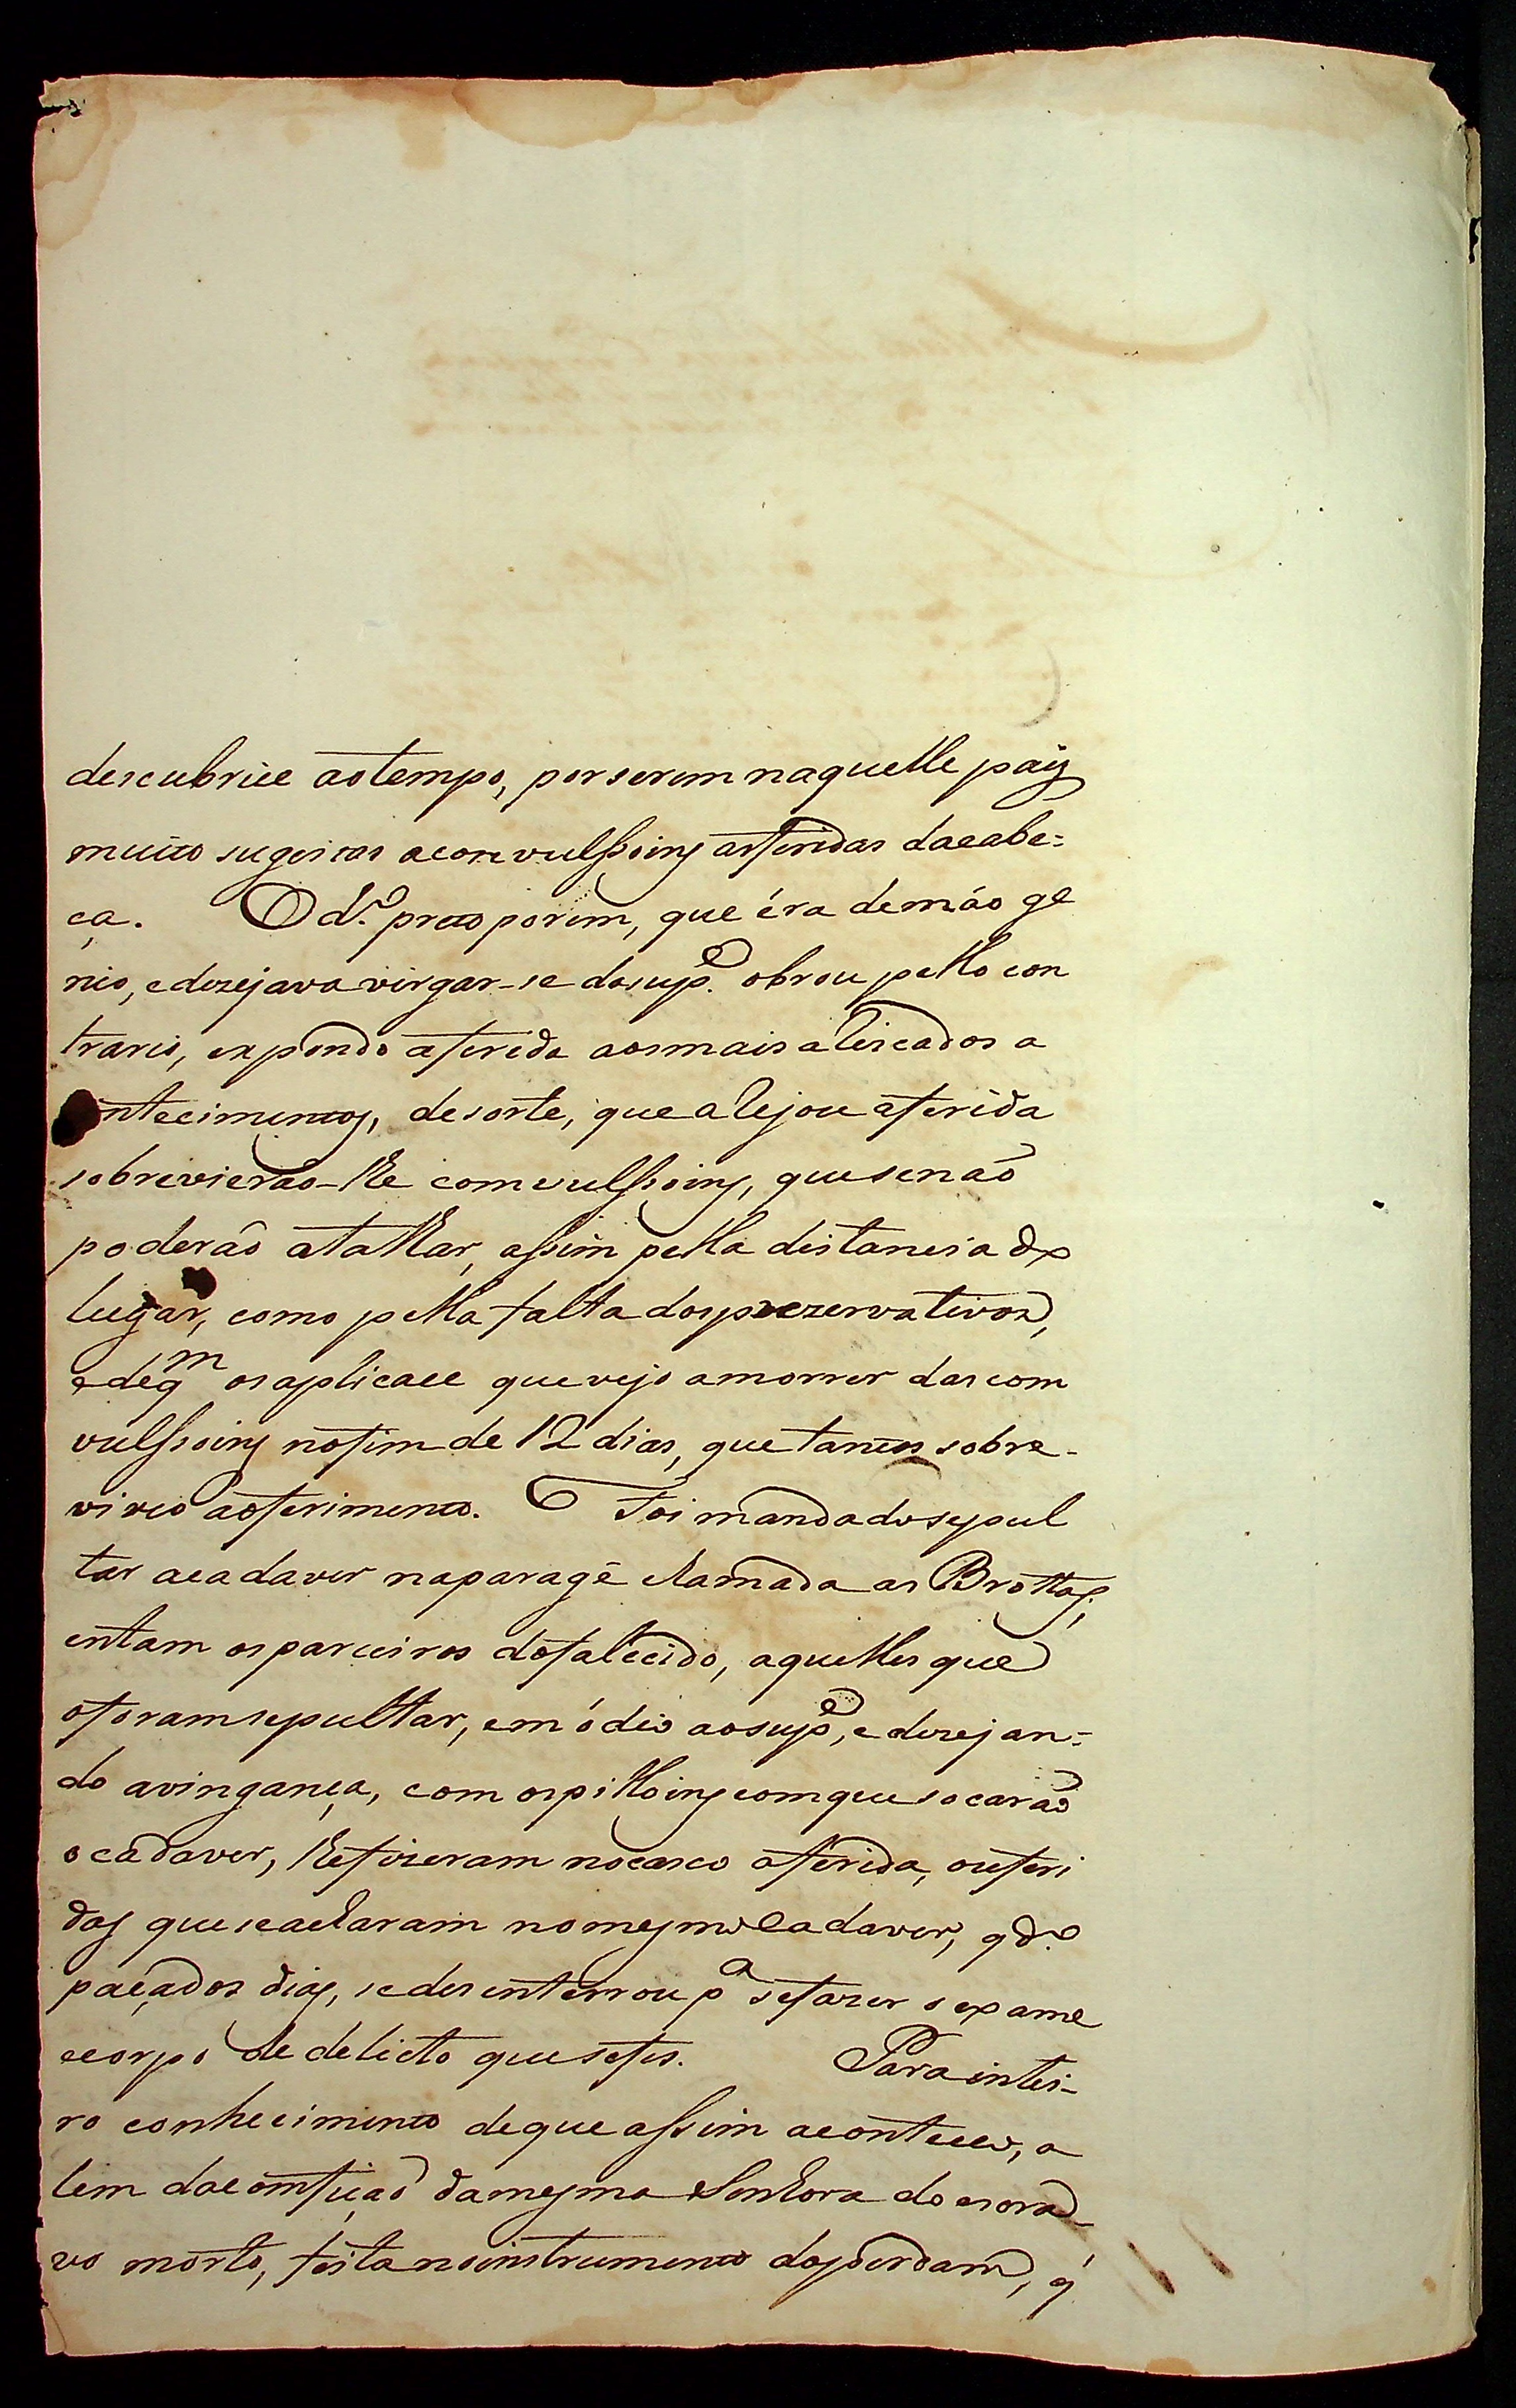 descubrice ao tempo, por serem naquelle paiz
muito sugeitas a convulssoins as feridas da cabe=
ça. O d.º preto porem, que éra de máo ge
nio, e dezejava vingar-se do sup.e obrou pello con
trario, expondo a ferida aos mais arliscados a
contecimentos, de sorte, que alejou a ferida
sobrevierão-lhe comvulssoins, que se não
poderão atalhar, assim pella distancia do
lugar, como pella falta dos prezervativos,
e de q.m os aplicace que vejo a morrer das com
vulssoins no fim de 12 dias, que tantos sobre-
viveo ao ferimento. Foi mandado sepul
tar a cadaver na paragẽ chamada as Brottas,
entam os parceiros do falecido, aquelles que
o foram sepultar, em ódio ao sup.e, e dezejan=
do a vingança, com os pilloins com que socarão
o cadaver, lhe fizeram no casco a ferida, ou feri
das que se acharam no mesmo cadaver, q.do
paçados dias, se desenterrou p.a se fazer o exame
e corpo de delicto que se fes. Para intei-
ro conhecimento de que assim aconteceo, a
lem da comfição da mesma Senhora do escra-
vo morto, feita no instrumento do perdam, q'